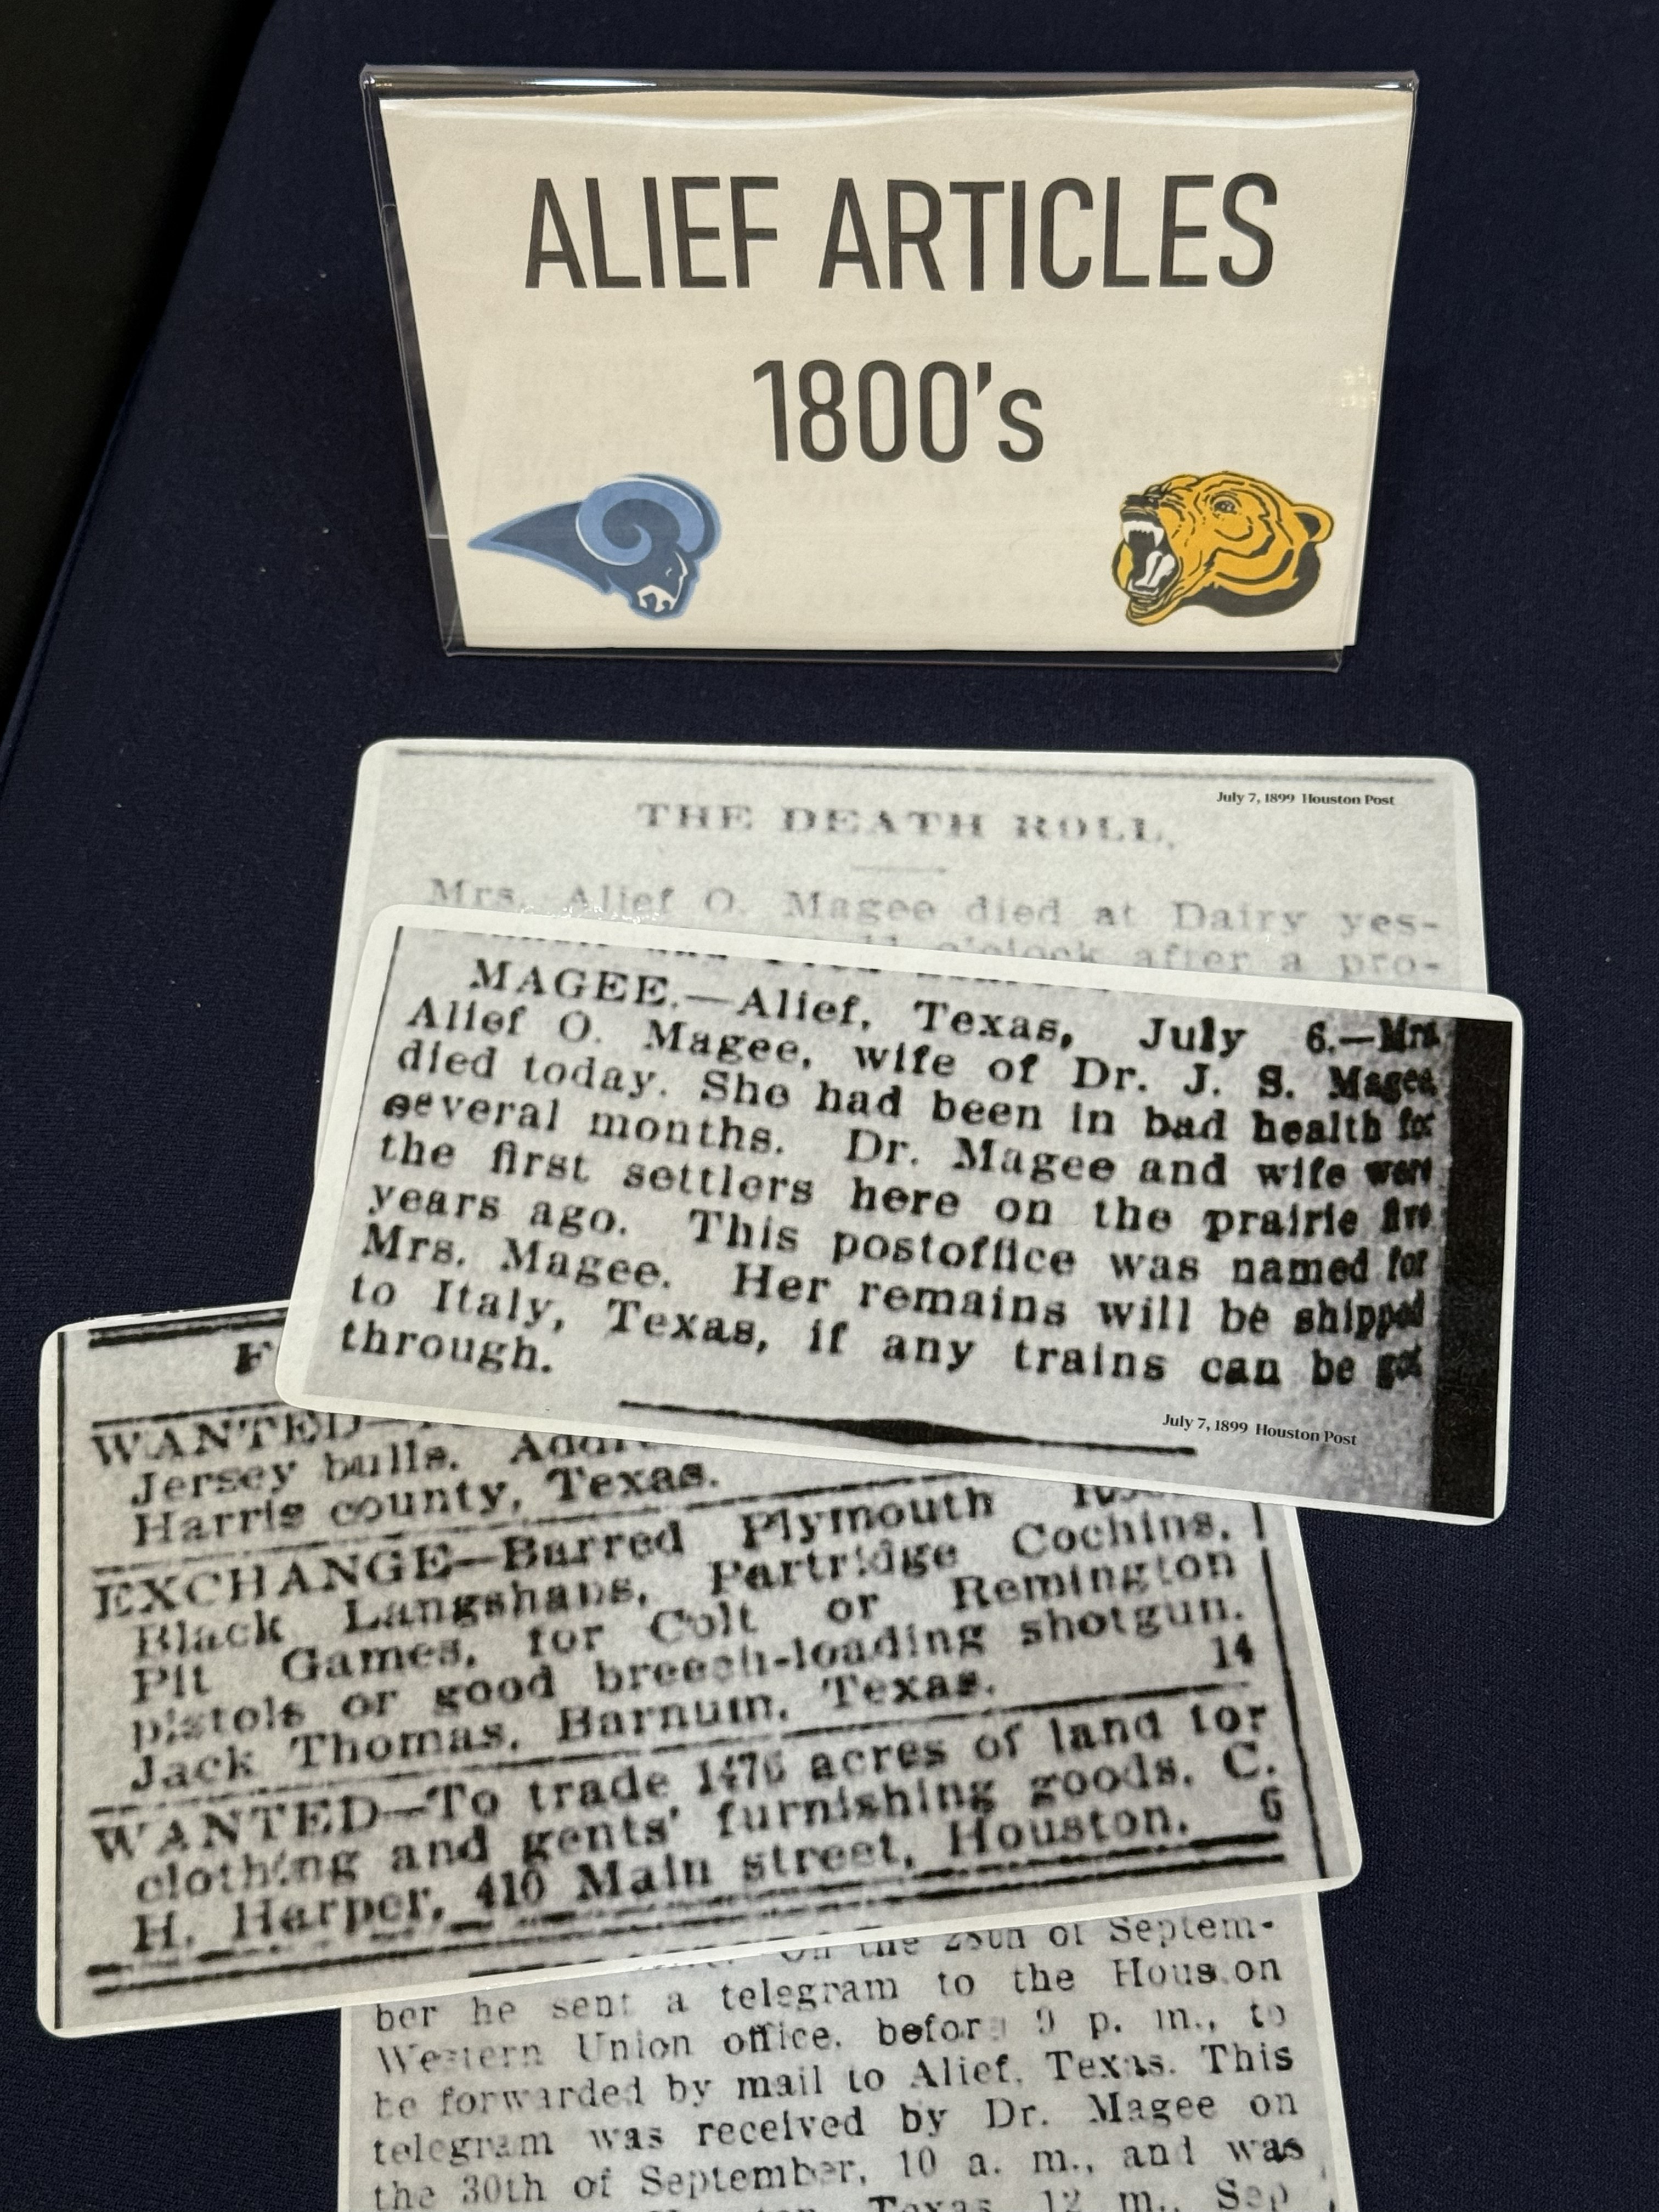 ALIEF ARTICLES
1800's
July 7, 1899 Houston Post
THE DEATH ROLL.
Mrs. Alief O. Magee died at Dairy yes-
o'clock after a pro-
MAGEE.—Alief, Texas, July 6.—Mrs.
Alief O. Magee, wife of Dr. J. S. Magee,
died today. She had been in bad health for
several months. Dr. Magee and wife were
the first settlers here on the prairie five
years ago. This postoffice was named for
Mrs. Magee. Her remains will be shipped
to Italy, Texas, if any trains can be got
through.
July 7, 1899 Houston Post
F
WANTED—
Jersey bulls.
Harris county, Texas.
EXCHANGE—Barred Plymouth
Black Langshans, Partridge Cochins,
Pit Games, for Colt or Remington
pistols or good breech-loading shotgun.
Jack Thomas, Barnum, Texas. 14
WANTED—To trade acres of land for
clothing and gents' furnishing goods. C.
H. Harper, 410 Main street, Houston. 6
On the 28th of Septem-
ber he sent a telegram to the Hous on
Western Union office, before 9 p. m., to
be forwarded by mail to Alief, Texas. This
telegram was received by Dr. Magee on
the 30th of September, 10 a. m., and was
Texas, 12 m., Sep